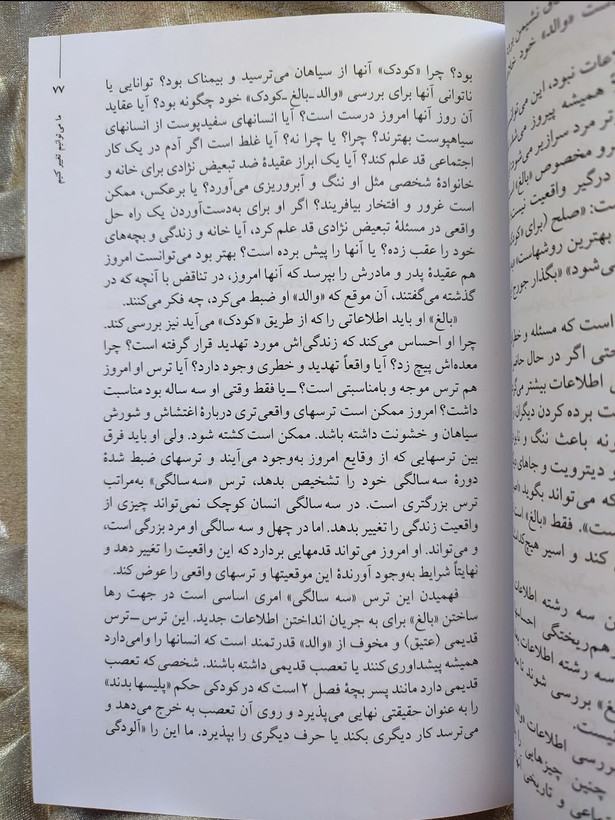 ۷۷
ما می‌توانیم تغییر کنیم
بود؟ چرا «کودک» آنها از سیاهان می‌ترسید و بیمناک بود؟ توانایی یا
ناتوانی آنها برای بررسی «والد ـ بالغ ـ کودک» خود چگونه بود؟ آیا عقاید
آن روز آنها امروز درست است؟ آیا انسانهای سفیدپوست از انسانهای
سیاهپوست بهترند؟ چرا؟ یا چرا نه؟ آیا غلط است اگر آدم در یک کار
اجتماعی قد علم کند؟ آیا یک ابراز عقیدهٔ ضد تبعیض نژادی برای خانه و
خانوادهٔ شخصی مثل او ننگ و آبروریزی می‌آورد؟ یا برعکس، ممکن
است غرور و افتخار بیافریند؟ اگر او برای به‌دست‌آوردن یک راه حل
واقعی در مسئلهٔ تبعیض نژادی قد علم کرد، آیا خانه و زندگی و بچه‌های
خود را عقب زده؟ یا آنها را پیش برده است؟ بهتر بود می‌توانست امروز
هم عقیدهٔ پدر و مادرش را بپرسد که آنها امروز، در تناقض با آنچه که در
گذشته می‌گفتند، آن موقع که «والد» او ضبط می‌کرد، چه فکر می‌کنند.
«بالغ» او باید اطلاعاتی را که از طریق «کودک» می‌آید نیز بررسی کند.
چرا او احساس می‌کند که زندگی‌اش مورد تهدید قرار گرفته است؟ چرا
معده‌اش پیچ زد؟ آیا واقعاً تهدید و خطری وجود دارد؟ آیا ترس او امروز
هم ترس موجه و بامناسبتی است؟ ـ یا فقط وقتی او سه ساله بود مناسبت
داشت؟ امروز ممکن است ترسهای واقعی‌تری دربارهٔ اغتشاش و شورش
سیاهان و خشونت داشته باشد. ممکن است کشته شود. ولی او باید فرق
بین ترسهایی که از وقایع امروز به‌وجود می‌آیند و ترسهای ضبط شدهٔ
دورهٔ سه‌سالگی خود را تشخیص بدهد، ترس «سه‌سالگی» به‌مراتب
ترس بزرگتری است. در سه‌سالگی انسان کوچک نمی‌تواند چیزی از
واقعیت زندگی را تغییر بدهد. اما در چهل و سه سالگی او مرد بزرگی است،
و می‌تواند. او امروز می‌تواند قدمهایی بردارد که این واقعیت را تغییر دهد و
نهایتاً شرایط به‌وجود آورندهٔ این موقعیتها و ترسهای واقعی را عوض کند.
فهمیدن این ترس «سه سالگی» امری اساسی است در جهت رها
ساختن «بالغ» برای به جریان انداختن اطلاعات جدید. این ترس ـ ترس
قدیمی (عتیق) و مخوف از «والد» قدرتمند است که انسانها را وامی‌دارد
همیشه پیشداوری کنند یا تعصب قدیمی داشته باشند. شخصی که تعصب
قدیمی دارد مانند پسر بچهٔ فصل ۲ است که در کودکی حکم «پلیسها بدند»
را به عنوان حقیقتی نهایی می‌پذیرد و روی آن تعصب به خرج می‌دهد و
می‌ترسد کار دیگری بکند یا حرف دیگری را بپذیرد. ما این را «آلودگی